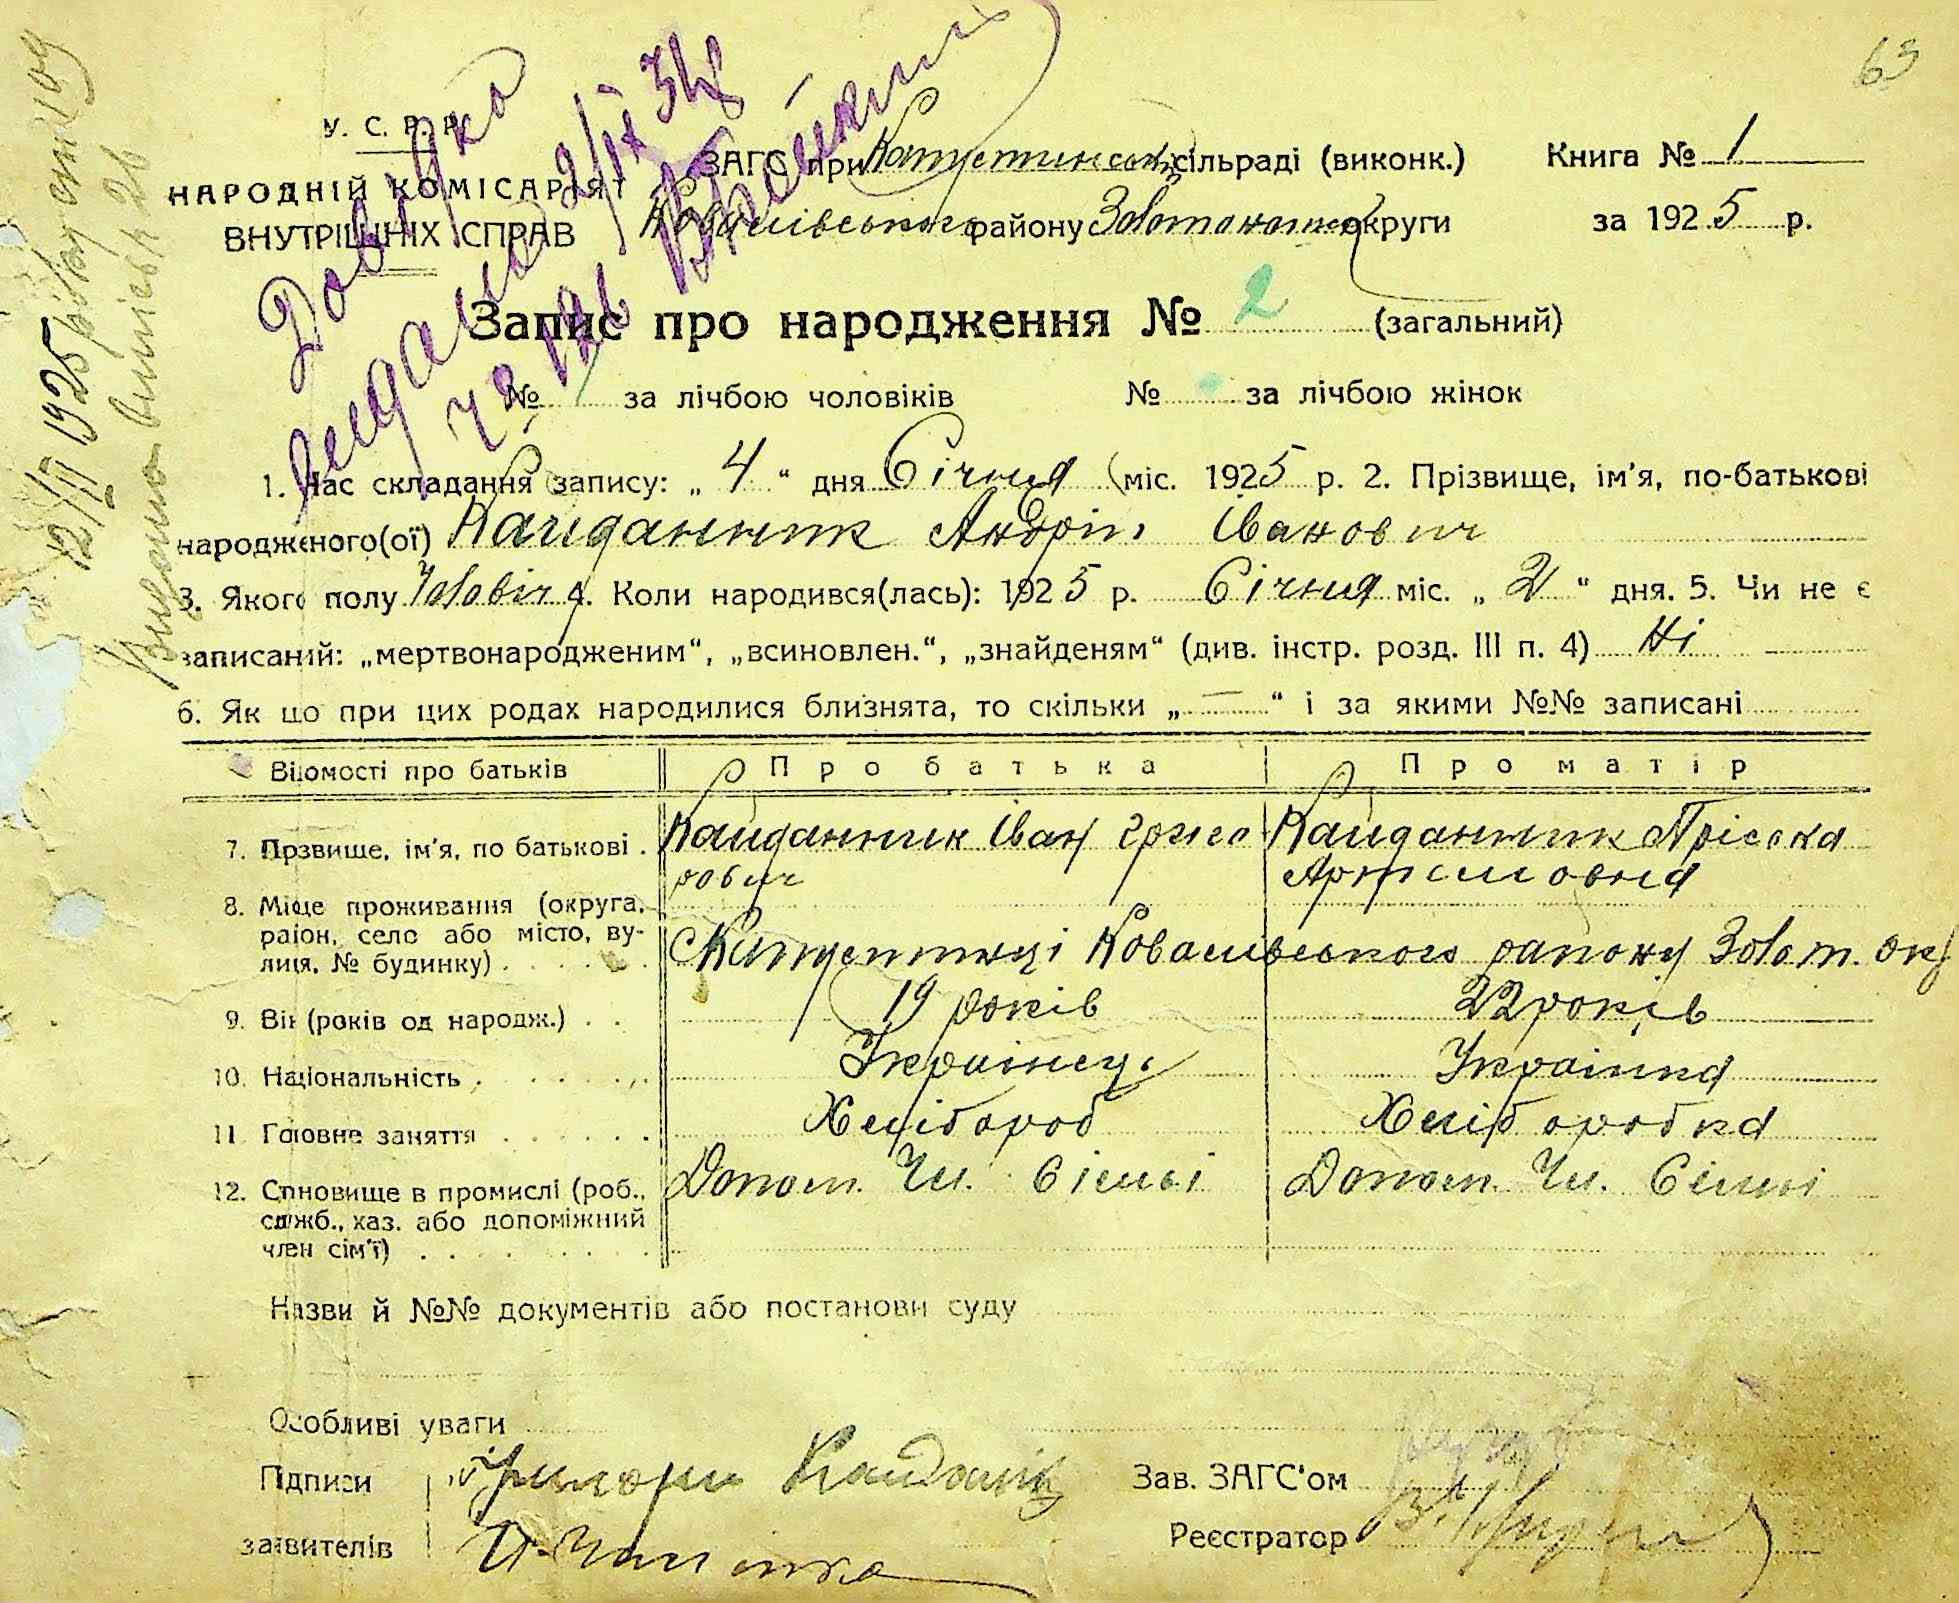 63
У. С. Р. Р.
НАРОДНІЙ КОМІСАРІЯТ
ВНУТРІШНІХ СПРАВ
ЗАГС при Капустинській сільраді (виконк.)
Книга № 1
Ковалівського району Золотоноської округи
за 1925 р.
Довідка
видана 9/IX 34
Запис про народження № 2 (загальний)
№ 1 за лічбою чоловіків
№ за лічбою жінок
1. Час складання запису: „ 4 “ дня Січня міс. 1925 р. 2. Прізвище, ім'я, по-батькові
народженого(ої) Кайданник Андрій Іванович
3. Якого полу Чоловіч 4. Коли народився(лась): 1925 р. Січня міс. „ 2 “ дня. 5. Чи не є
записаний: „мертвонародженим“, „всиновлен.“, „знайденям“ (див. інстр. розд. III п. 4) Ні
6. Як що при цих родах народилися близнята, то скільки „ — “ і за якими №№ записані
Відомості про батьків
Про батька
Про матір
7. Прзвище, ім'я, по батькові .
Кайданник Іван Григо
рович
Кайданник Пріська
Артемовна
8. Місце проживання (округа,
район, село або місто, ву-
лиця, № будинку) . . . .
с Капустинці Ковалівського району Золот. окр
9. Вік (років од народж.) . .
19 років
22 років
10. Національність . . . . . .
Українець
Українка
11. Головне заняття . . . . . .
Хлібороб
Хліборобка
12. Становище в промислі (роб.,
служб., хаз. або допоміжний
член сім'ї) . . . . . . . .
Допом. Чл. Сімьі
Допом. Чл. Сімьі
Назви й №№ документів або постанови суду
Особливі уваги
Підписи
заявителів
Зав. ЗАГС'ом
Реєстратор
12/II 1925